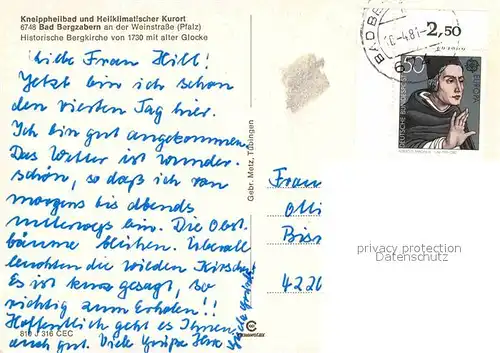 Kneippheilbad und Heilklimatischer Kurort
6748 Bad Bergzabern an der Weinstraße (Pfalz)
Historische Bergkirche von 1730 mit alter Glocke
Liebe Frau Hill!
Jetzt bin ich schon
den vierten Tag hier.
Ich bin gut angekommen.
Das Wetter ist wunder-
schön, so daß ich von
morgens bis abends
unterwegs bin. Die Obst-
bäume blühen. Überall
leuchten die wilden Kirschen
Es ist kurz gesagt, so
richtig zum Erholen!!
Hoffentlich geht es Ihnen
auch gut. Viele Grüße Ihre
810 J 316 CEC
Gebr. Metz, Tübingen
BAD BE
-4.81-
2,50
50
EUROPA
DEUTSCHE BUNDESPOST
Frau
Otti
Biss
4220
privacy protection
Datenschutz